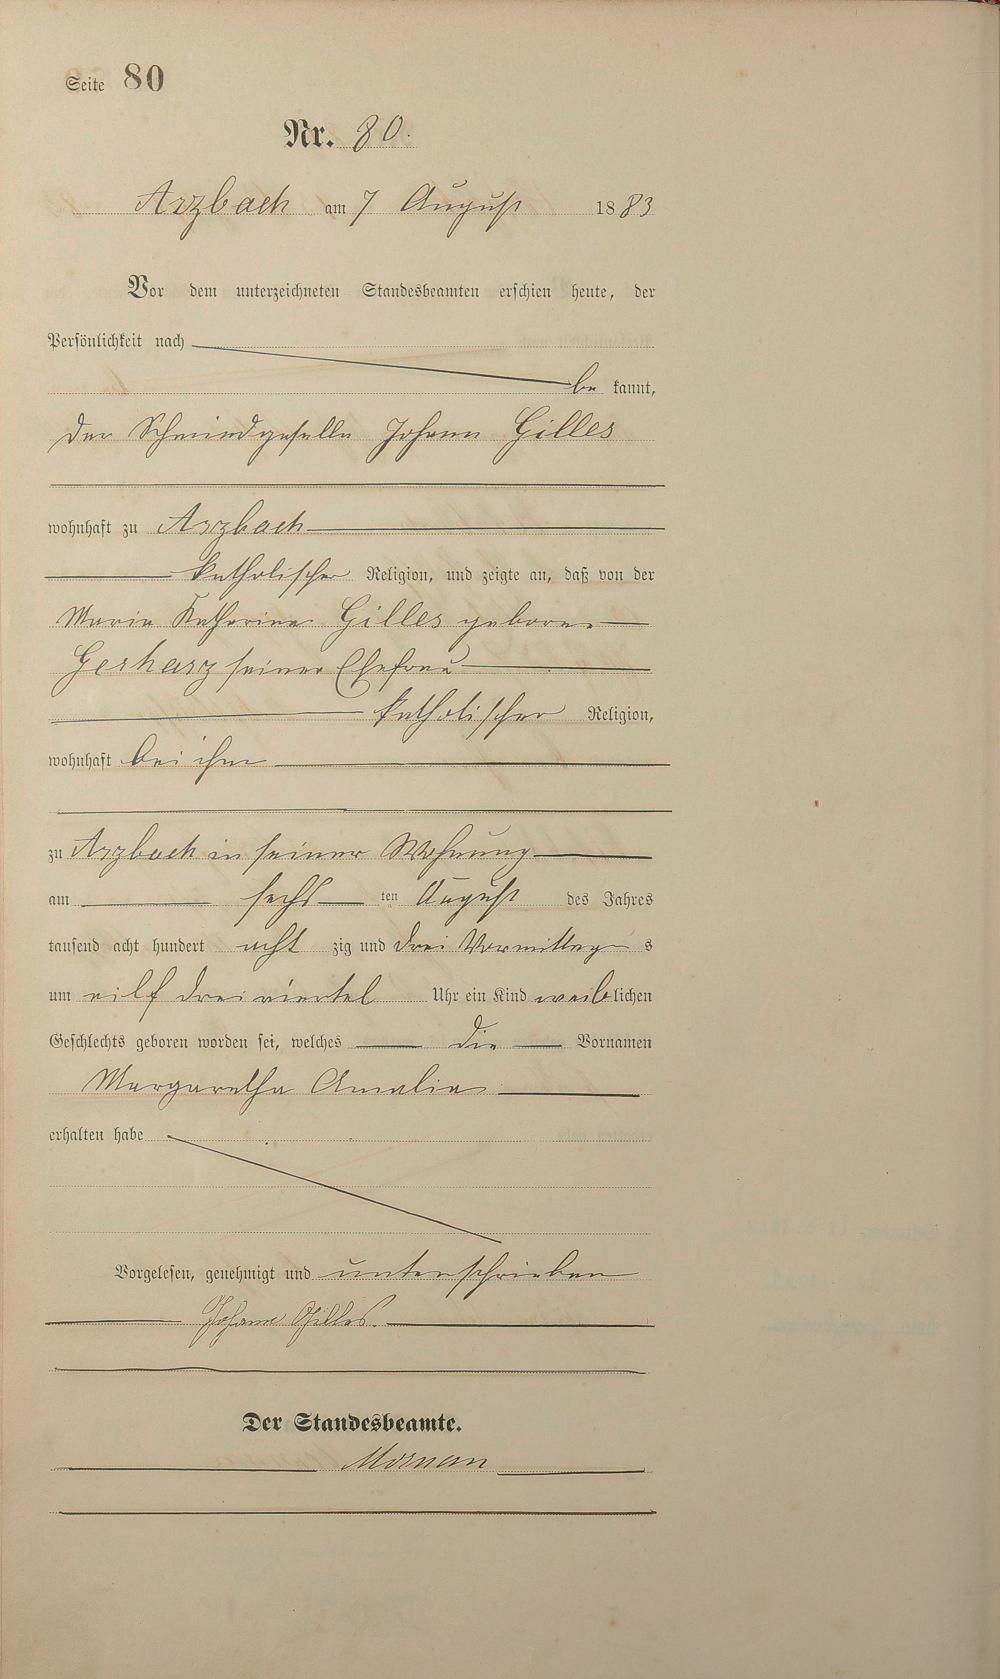 Seite 80
Nr. 80.
Arzbach am 7 August 1883
Vor dem unterzeichneten Standesbeamten erschien heute, der
Persönlichkeit nach
be kannt,
der Schmiedgeselle Johann Gilles
wohnhaft zu Arzbach
katholischer Religion, und zeigte an, daß von der
Maria Katharina Gilles geborne
Gerharz seiner Ehefrau
katholischer Religion,
wohnhaft bei ihm
zu Arzbach in seiner Wohnung
am sechs ten August des Jahres
tausend acht hundert acht zig und drei Vormittag s
um eilf dreiviertel Uhr ein Kind weiblichen
Geschlechts geboren worden sei, welches die Vornamen
Margaretha Amalia
erhalten habe
Vorgelesen, genehmigt und unterschrieben
Johann Gilles.
Der Standesbeamte.